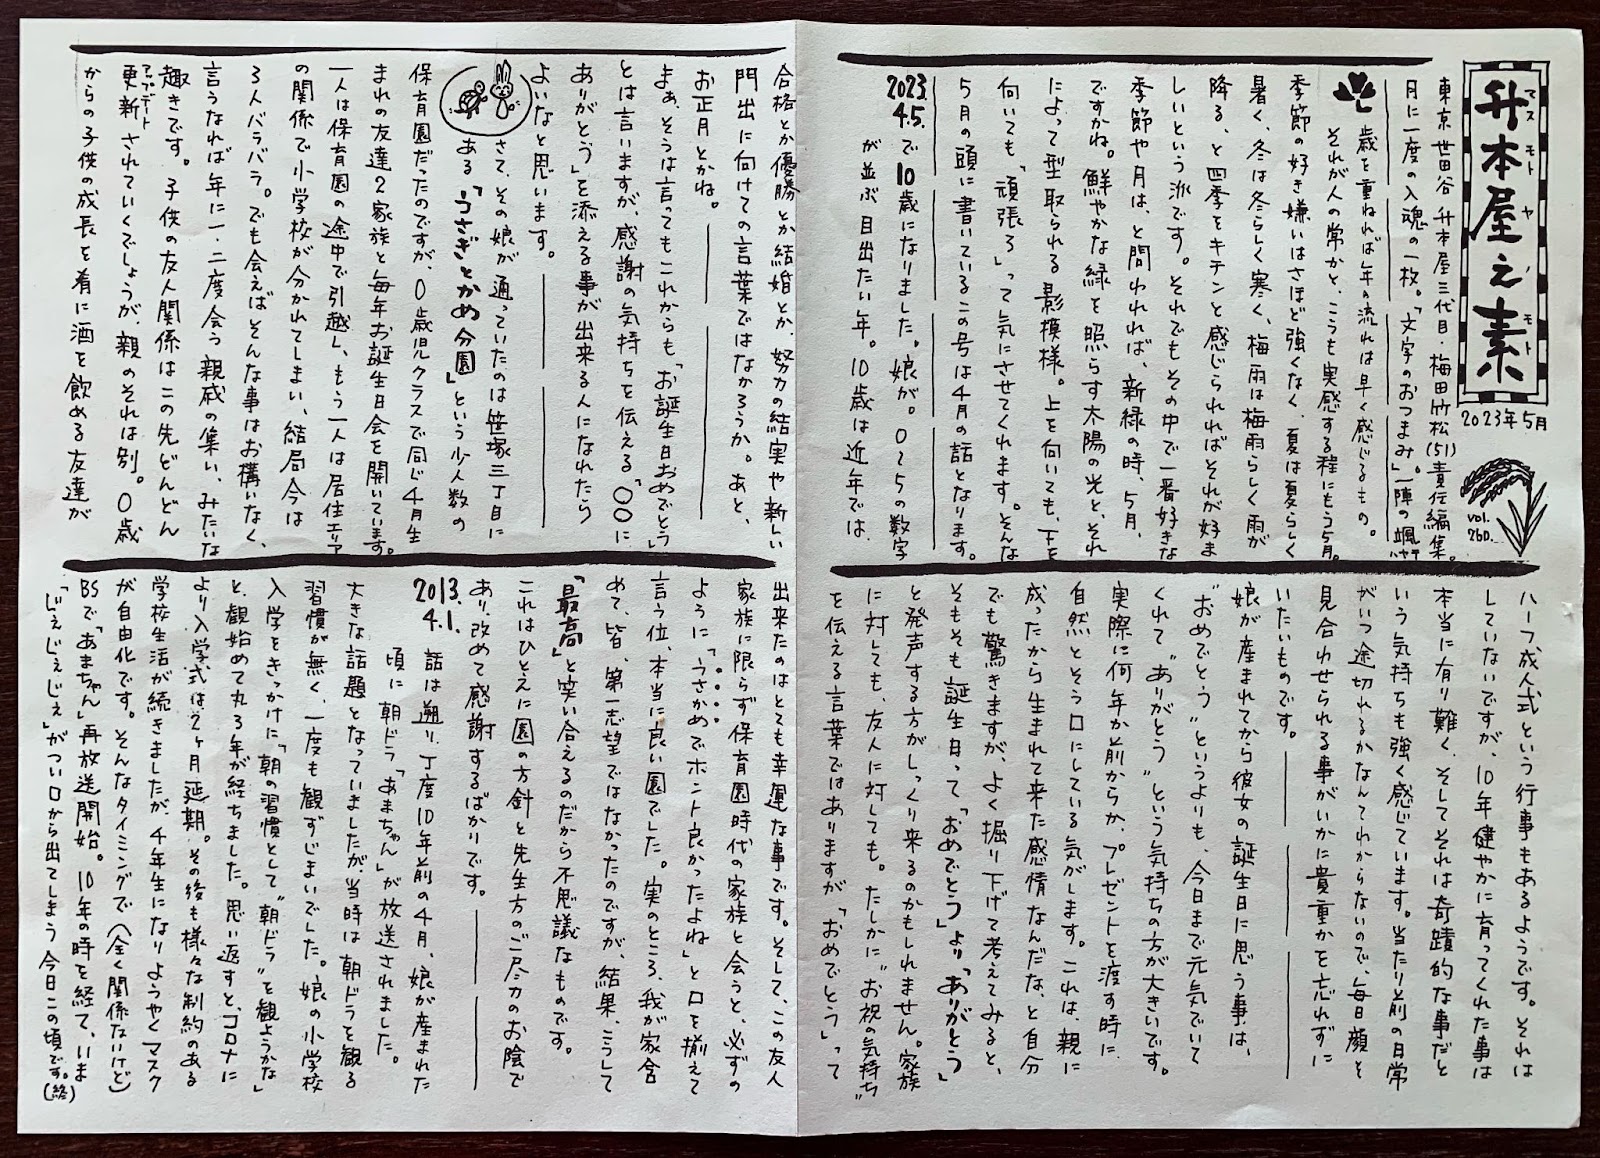 升本屋之素
マスモトヤノモト
2023年5月
vol. 260.
東京世田谷 升本屋三代目・梅田竹松(51)責任編集。
月に一度の入魂の一枚。「文字のおつまみ」一陣の颯
歳を重ねれば年の流れは早く感じるもの。
それが人の常かと、こうも実感する程にもう5月。
季節の好き嫌いはさほど強くなく、夏は夏らしく
暑く、冬は冬らしく寒く、梅雨は梅雨らしく雨が
降る、と四季をキチンと感じられればそれが好ま
しいという派です。それでもその中で一番好きな
季節や月は、と問われれば、新緑の時、5月、
ですかね。鮮やかな緑を照らす太陽の光と、それ
によって型取られる影模様。上を向いても、下を
向いても「頑張ろ」って気にさせてくれます。そんな
5月の頭に書いているこの号は4月の話となります。
2023.4.5.で10歳になりました。娘が。0〜5の数字
が並ぶ目出たい年。10歳は近年では、
ハーフ成人式という行事もあるようです。それは
していないですが、10年健やかに育ってくれた事は
本当に有り難く、そしてそれは奇蹟的な事だと
いう気持ちも強く感じています。当たり前の日常
がいつ途切れるかなんてわからないので、毎日顔を
見合わせられる事がいかに貴重かを忘れずに
いたいものです。
娘が産まれてから彼女の誕生日に思う事は、
“おめでとう”というよりも、今日まで元気でいて
くれて“ありがとう”という気持ちの方が大きいです。
実際に何年か前からか、プレゼントを渡す時に、
自然とそう口にしている気がします。これは、親に
成ったから生まれて来た感情なんだな、と自分
でも驚きますが、よく掘り下げて考えてみると、
そもそも誕生日って「おめでとう」より「ありがとう」
と発声する方がしっくり来るのかもしれません。家族
に対しても、友人に対しても。たしかに“お祝の気持ち”
を伝える言葉ではありますが、「おめでとう」って
合格とか優勝とか結婚とか、努力の結実や新しい
門出に向けての言葉ではなかろうか。あと、
お正月とかね。
まぁ、そうは言ってもこれからも、「お誕生日おめでとう」
とは言いますが、感謝の気持ちを伝える「〇〇に
ありがとう」を添える事が出来る人になれたら
よいなと思います。
さて、その娘が通っていたのは笹塚三丁目に
ある「うさぎとかめ分園」という少人数の
保育園だったのですが、0歳児クラスで同じ4月生
まれの友達2家族と毎年お誕生日会を開いています。
一人は保育園の途中で引越し、もう一人は居住エリア
の関係で小学校が分かれてしまい、結局今は
3人バラバラ。でも会えばそんな事はお構いなく、
言うなれば年に一、二度会う親戚の集い、みたいな
趣きです。子供の友人関係はこの先どんどん
更新されていくでしょうが、親のそれは別。0歳
アップデート
からの子供の成長を肴に酒を飲める友達が
出来たのはとても幸運な事です。そして、この友人
家族に限らず保育園時代の家族と会うと、必ずの
ように「うさかめでホント良かったよね」と口を揃えて
言う位、本当に良い園でした。実のところ、我が家含
めて、皆、第一志望ではなかったのですが、結果、こうして
「最高」と笑い合えるのだから不思議なものです。
これはひとえに園の方針と先生方のご尽力のお陰で
あり、改めて感謝するばかりです。
2013.4.1. 話は遡り、丁度10年前の4月、娘が産まれた
頃に朝ドラ「あまちゃん」が放送されました。
大きな話題となっていましたが、当時は朝ドラを観る
習慣が無く、一度も観ずじまいでした。娘の小学校
入学をきっかけに「朝の習慣として“朝ドラ”を観ようかな」
と、観始めて丸3年が経ちました。思い返すと、コロナに
より入学式は2ヶ月延期。その後も様々な制約のある
学校生活が続きましたが、4年生になりようやくマスク
が自由化です。そんなタイミングで(全く関係ないけど)
BSで「あまちゃん」再放送開始。10年の時を経て、いま
「じぇじぇじぇ」がつい口から出てしまう今日この頃です。(終)